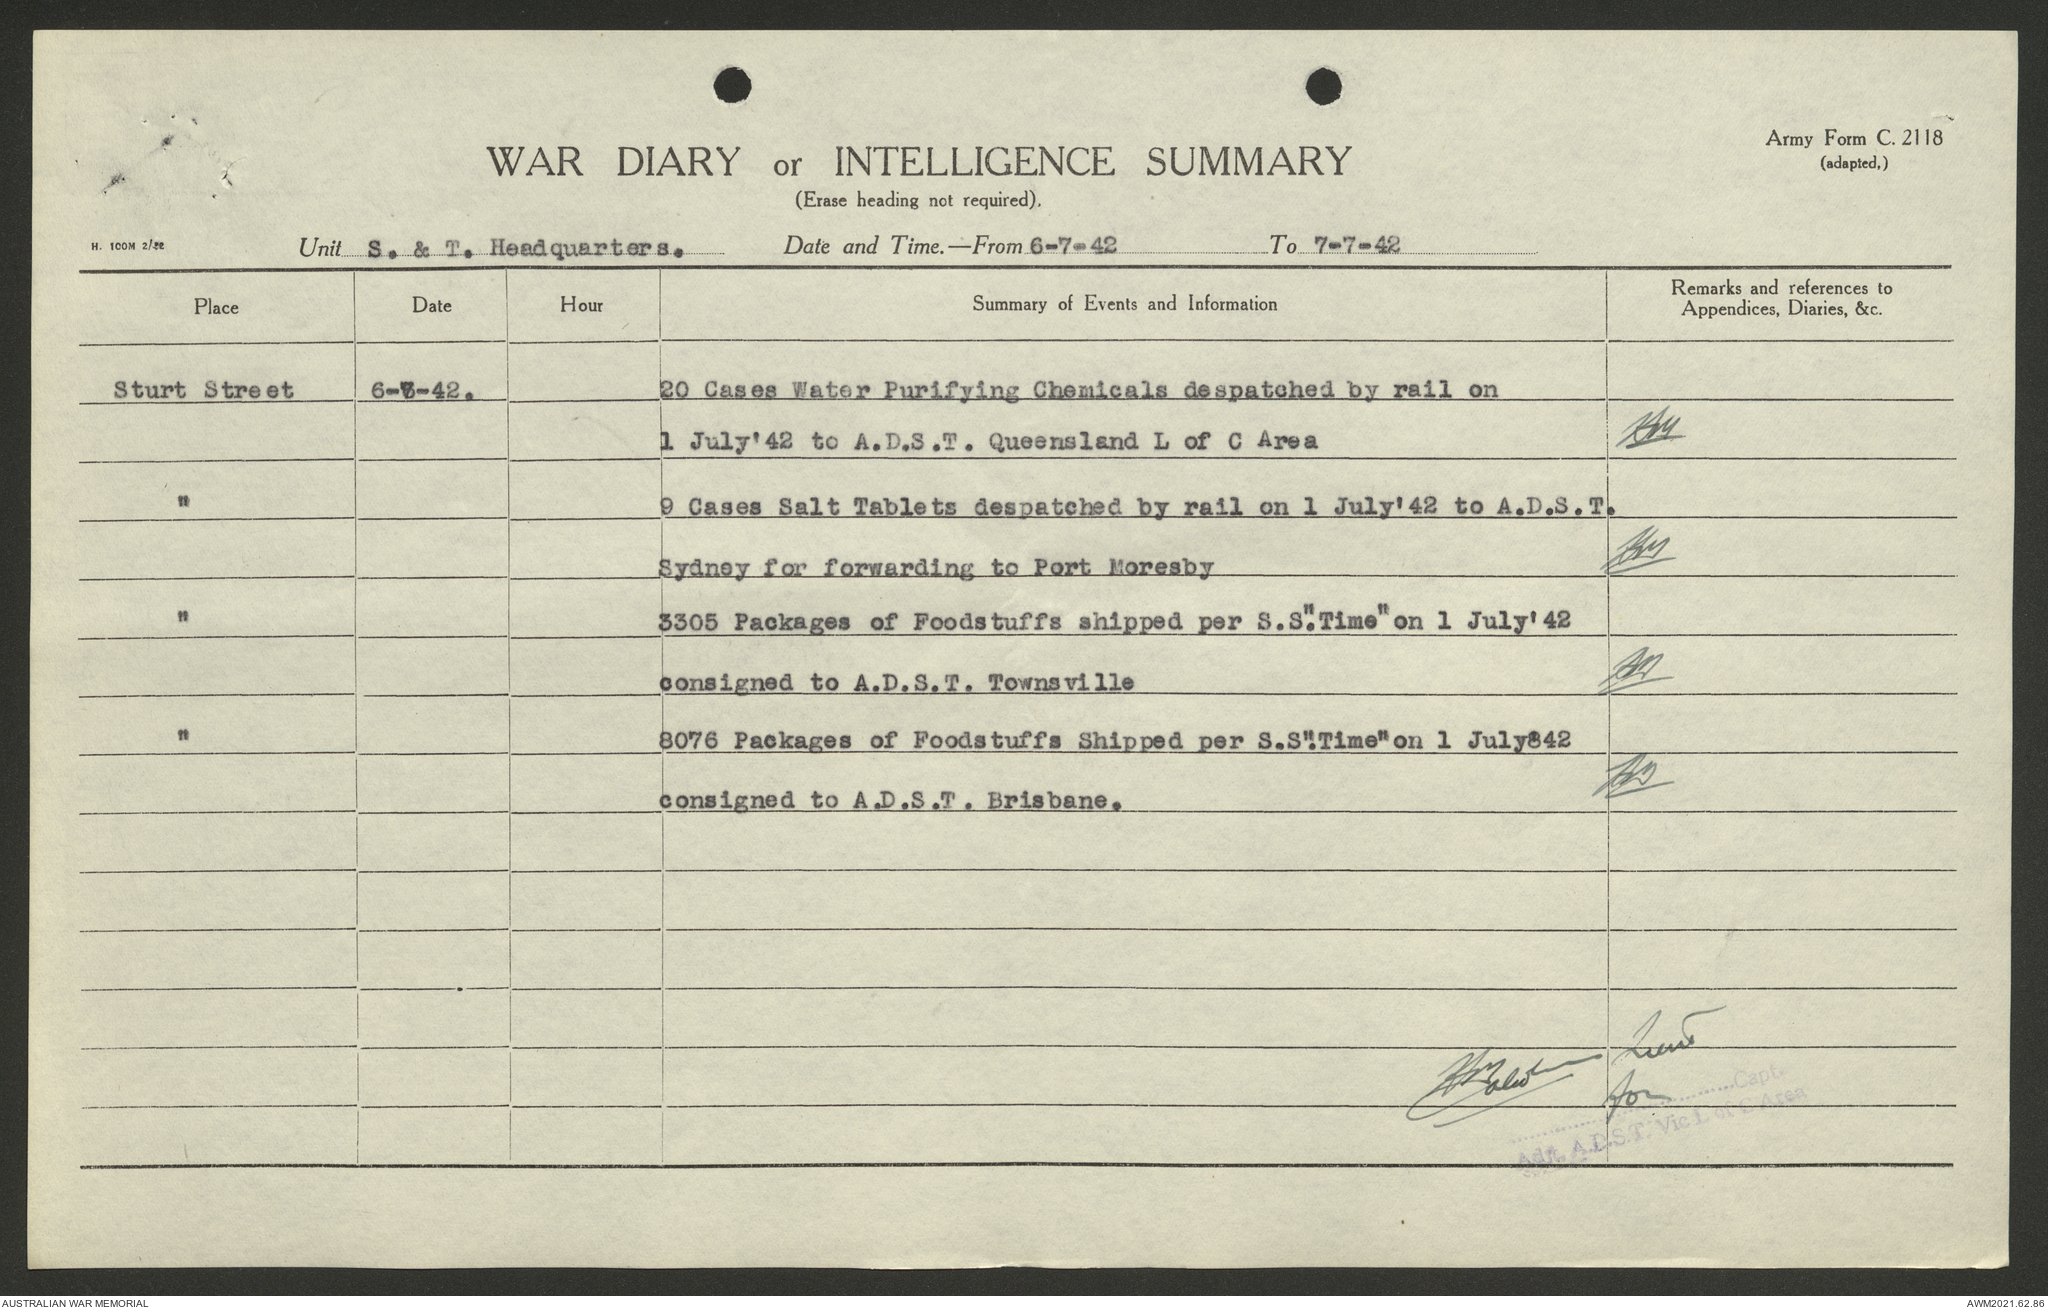 WAR DIARY or INTELLIGENCE SUMMARY
(Erase heading not required).
Army Form C. 2118
(adapted,)
H. 100M 2/32
Unit S. & T. Headquarters. Date and Time.—From 6-7-42 To 7-7-42
Place Date Hour Summary of Events and Information Remarks and references to
Appendices, Diaries, &c.
Sturt Street 6-7-42. 20 Cases Water Purifying Chemicals despatched by rail on
1 July'42 to A.D.S.T. Queensland L of C Area
" 9 Cases Salt Tablets despatched by rail on 1 July'42 to A.D.S.T.
Sydney for forwarding to Port Moresby
" 3305 Packages of Foodstuffs shipped per S.S."Time" on 1 July'42
consigned to A.D.S.T. Townsville
" 8076 Packages of Foodstuffs Shipped per S.S."Time" on 1 July842
consigned to A.D.S.T. Brisbane.
Lieut
for
Capt.
Adjt. A.D.S.T. Vic L of C Area
AUSTRALIAN WAR MEMORIAL AWM2021.62.86